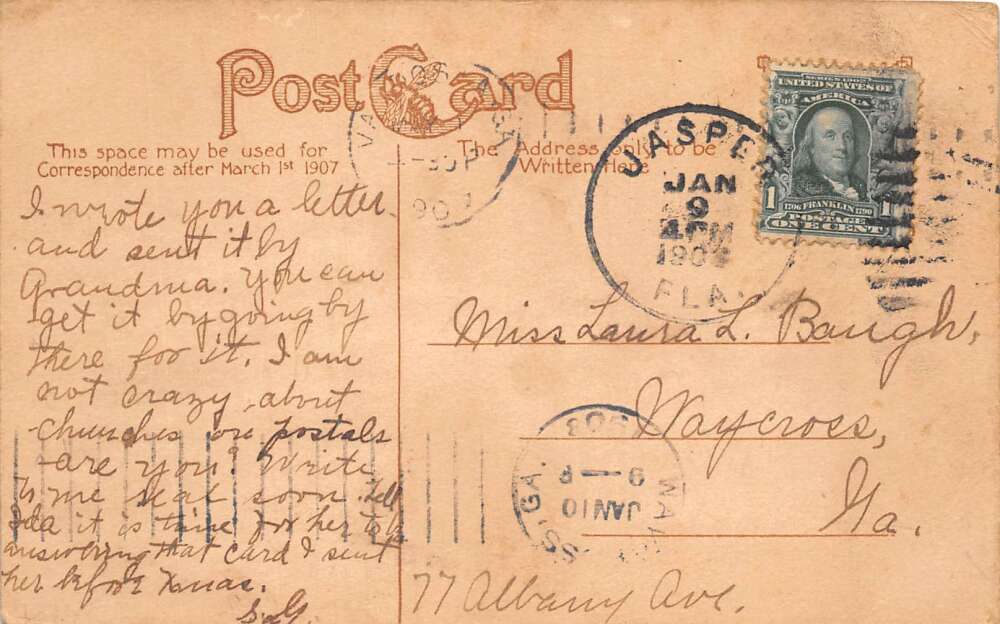 Post Card
This space may be used for
Correspondence after March 1st 1907
The Address only to be
Written Here
I wrote you a letter
and sent it by
Grandma. You can
get it by going by
there for it. I am
not crazy about
churches on postals
are you? Write
to me real soon. Tell
Ida it is time for her to be
answering that card I sent
her before Xmas.
JASPER
JAN
9
4 PM
190
FLA.
SERIES 1902
UNITED STATES OF
AMERICA
1706 FRANKLIN 1790
1 POSTAGE 1
ONE CENT
Miss Laura L. Baugh,
Waycross,
Ga.
77 Albany Ave.
JAN 10
9 — P
GA.